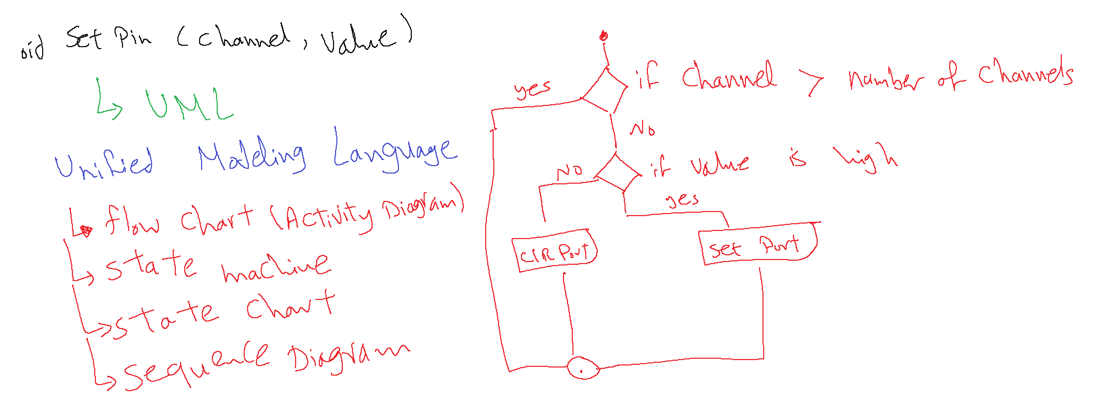 oid Set Pin (Channel, Value)
UML
Unified Modeling Language
flow Chart (Activity Diagram)
State machine
State Chart
Sequence Diagram
if Channel > number of Channels
yes
No
if value is high
NO
yes
CLR Port
Set Port